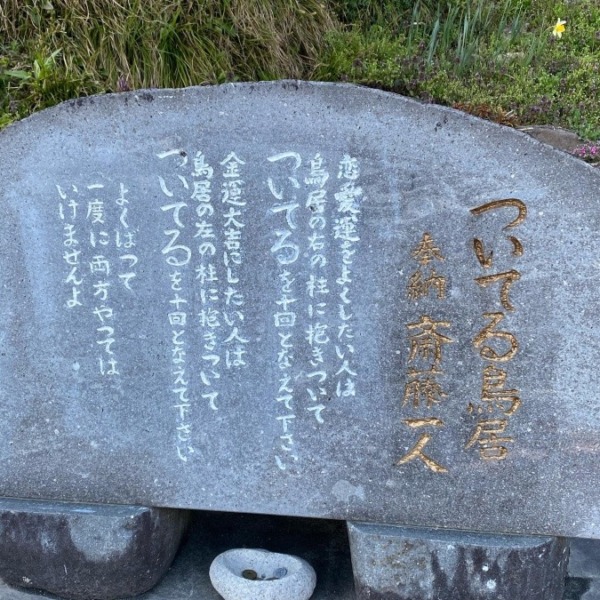 ついてる鳥居
奉納 斎藤一人
恋愛運をよくしたい人は
鳥居の右の柱に抱きついて
ついてるを十回となえて下さい
金運大吉にしたい人は
鳥居の左の柱に抱きついて
ついてるを十回となえて下さい
よくばって
一度に両方やっては
いけませんよ